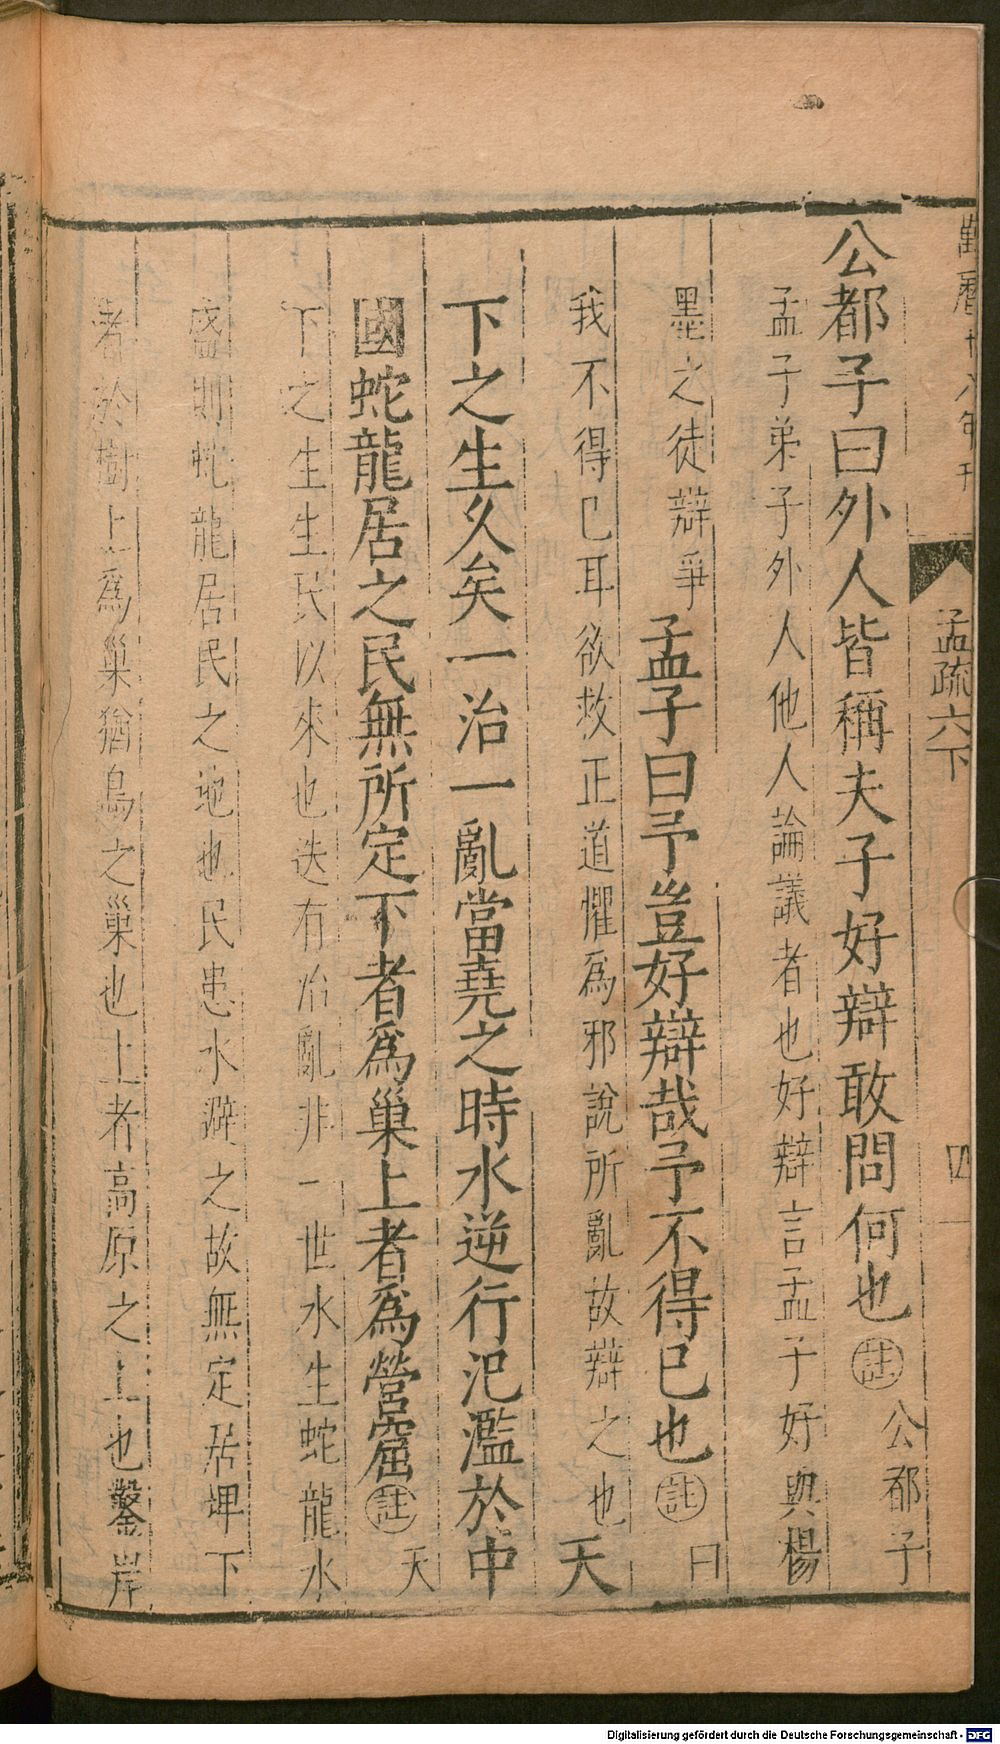 萬曆十八年刊
孟疏六下
四
公都子曰外人皆稱夫子好辯敢問何也註公都子
孟子弟子外人他人論議者也好辯言孟子好與楊
墨之徒辯爭孟子曰予豈好辯哉予不得已也註曰
我不得已耳欲救正道懼為邪說所亂故辯之也天
下之生久矣一治一亂當堯之時水逆行汜濫於中
國蛇龍居之民無所定下者為巢上者為營窟註天
下之生生民以來也迭有治亂非一世水生蛇龍水
盛則蛇龍居民之地也民患水避之故無定居埤下
者於樹上為巢猶鳥之巢也上者高原之上也鑿岸
Digitalisierung gefördert durch die Deutsche Forschungsgemeinschaft - DFG